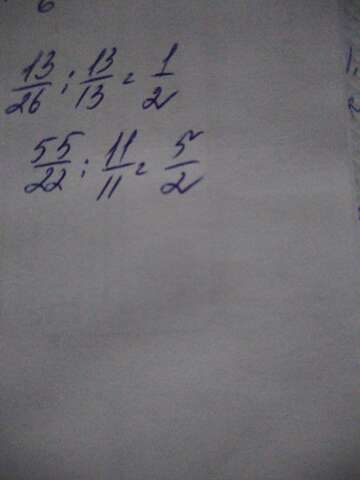 6
13/26 : 13/13 = 1/2
1.
55/22 : 11/11 = 5/2